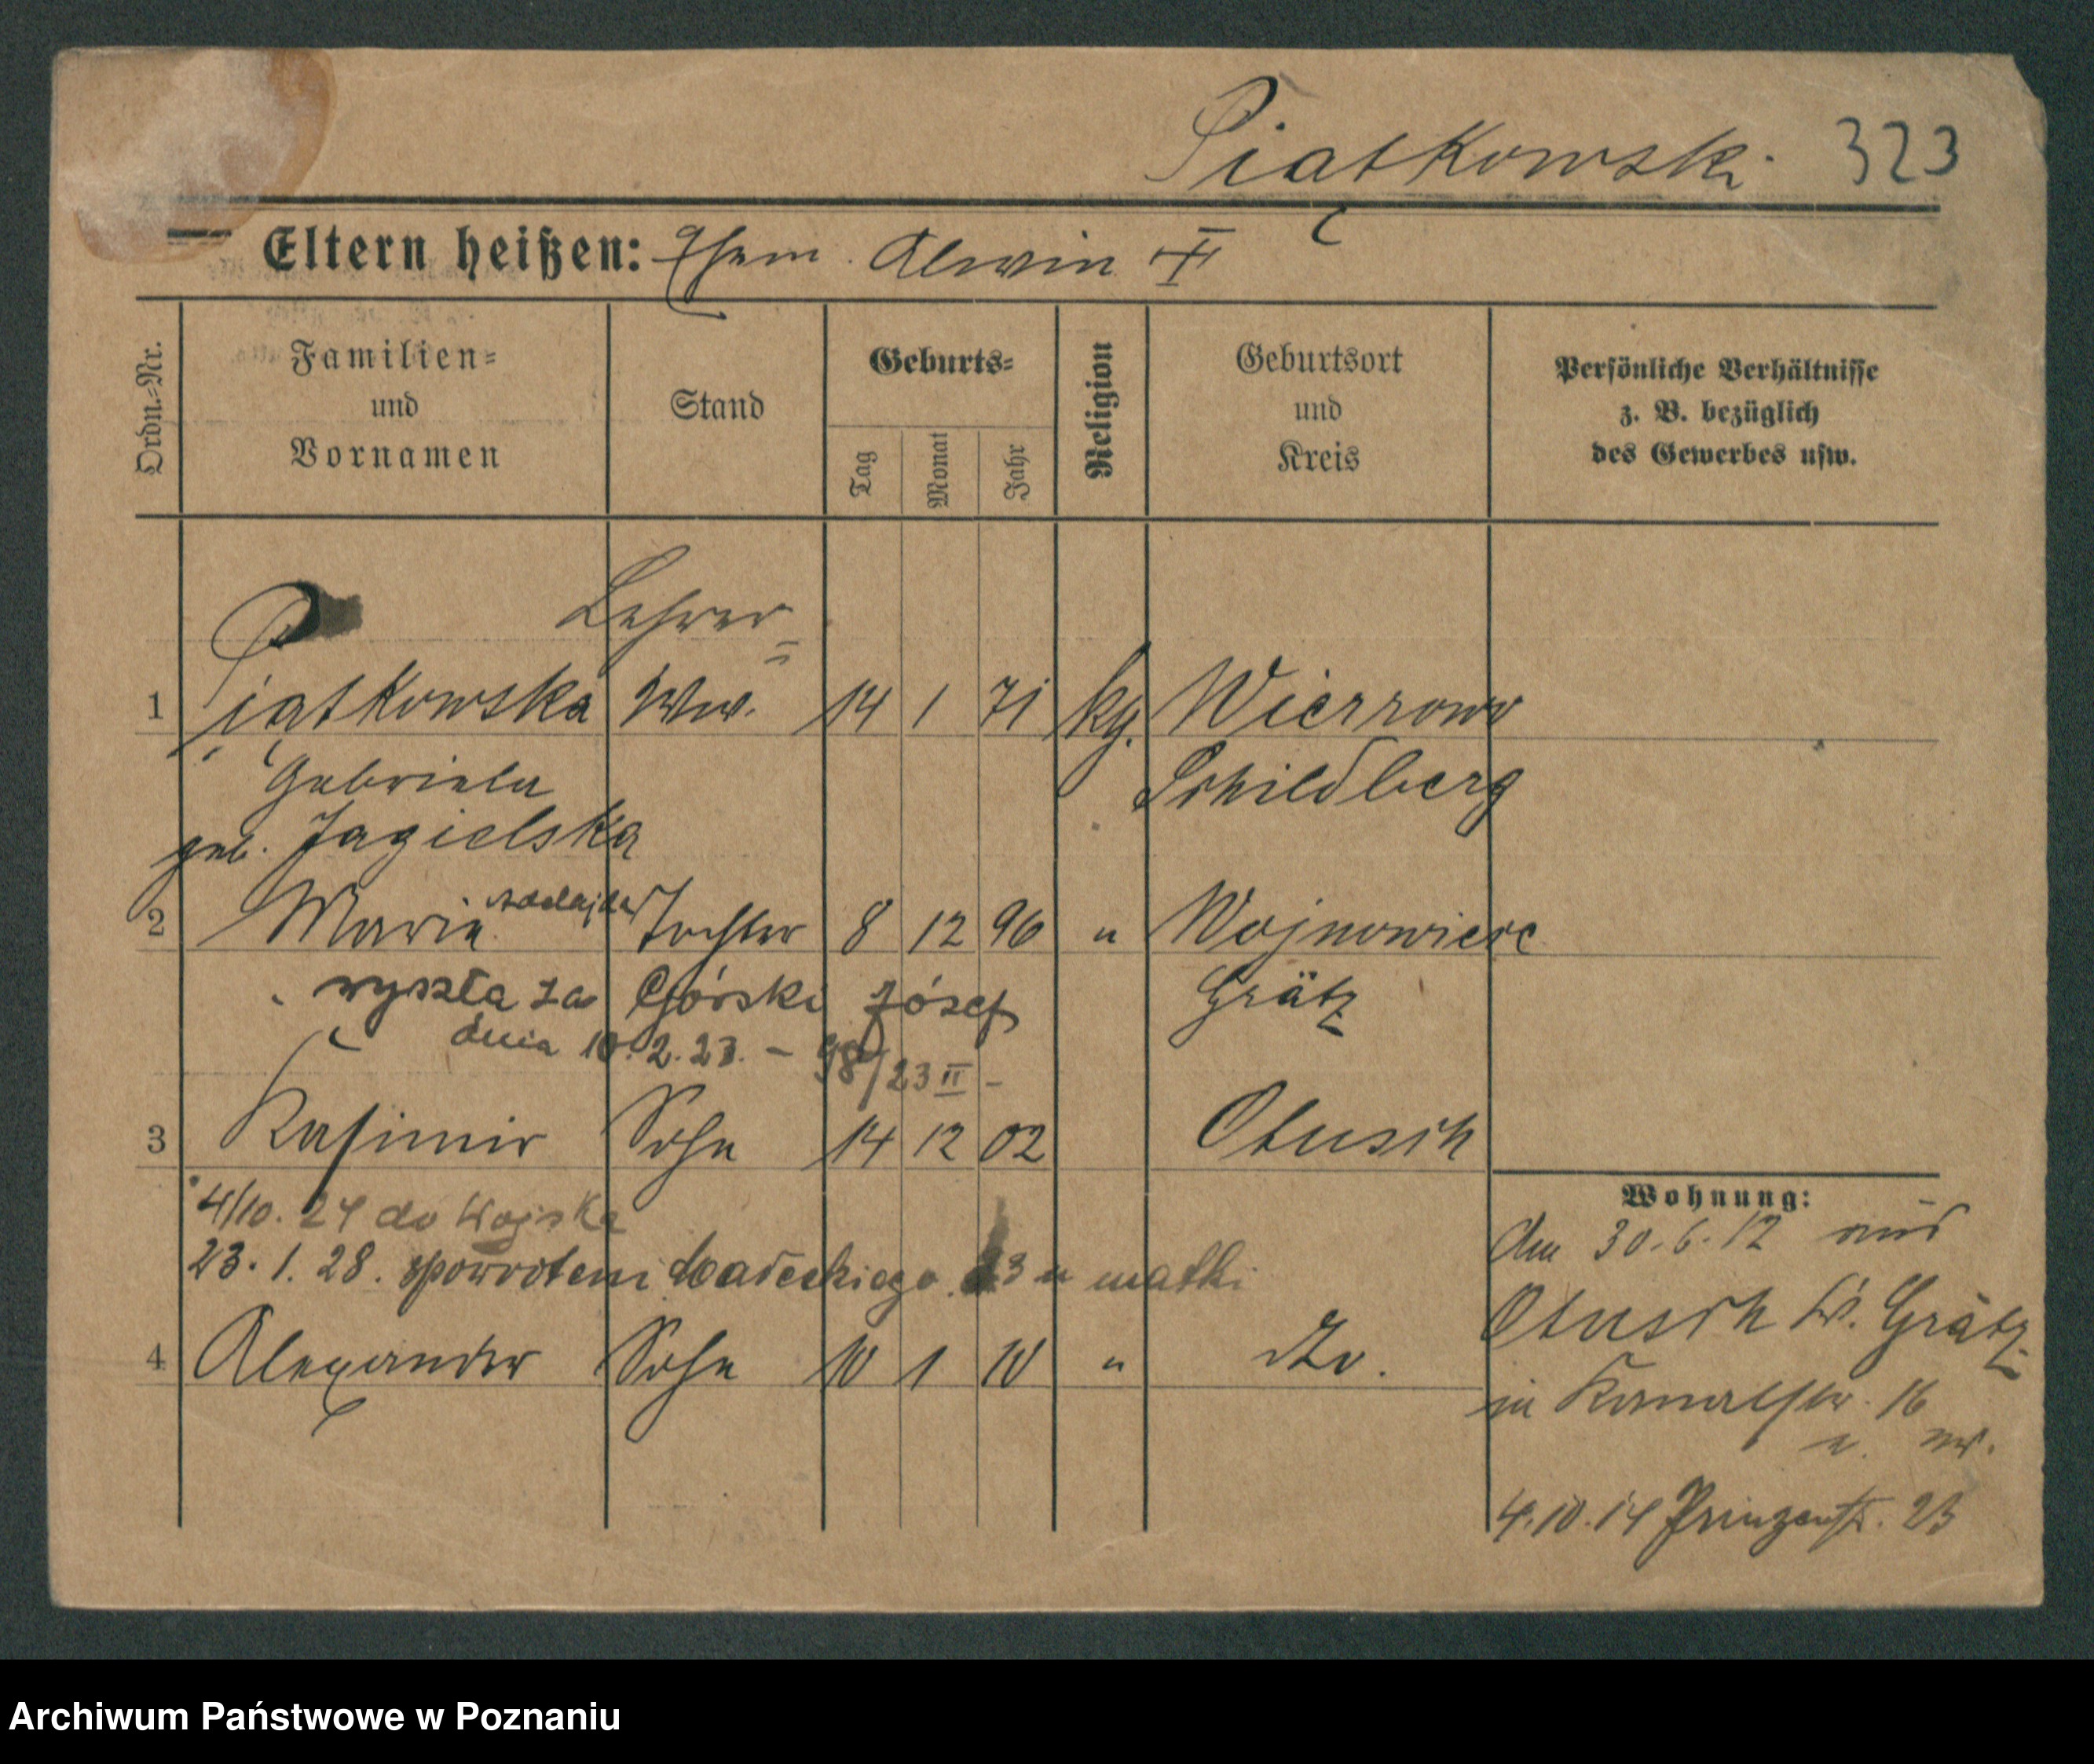 Piatkowski 323
Eltern heißen: Ehem. Alwin †
Ordn.=Nr.
Familien=
und
Vornamen
Stand
Geburts=
Tag
Monat
Jahr
Religion
Geburtsort
und
Kreis
Persönliche Verhältnisse
z. B. bezüglich
des Gewerbes usw.
Lehrer=
1 Piatkowska Ww. 14 1 71 kg. Wierzowo
Gabriela Schildberg
geb. Jagielska
2 Maria Adelajda Tochter 8 12 96 " Wojnowice
wyszła za Górski Józef Grätz
dnia 10.2.23. – 98/23 II –
3 Kasimir Sohn 14 12 02 Otusch
4/10. 24 do Wojska
23. 1. 28. spowrotem Małeckiego 23 u matki
4 Alexander Sohn 10 1 10 " dto.
Wohnung:
den 30.6.12 aus
Otusch Kr. Grätz
in Kanalstr. 16
4.10.14 Prinzenstr. 23
Archiwum Państwowe w Poznaniu